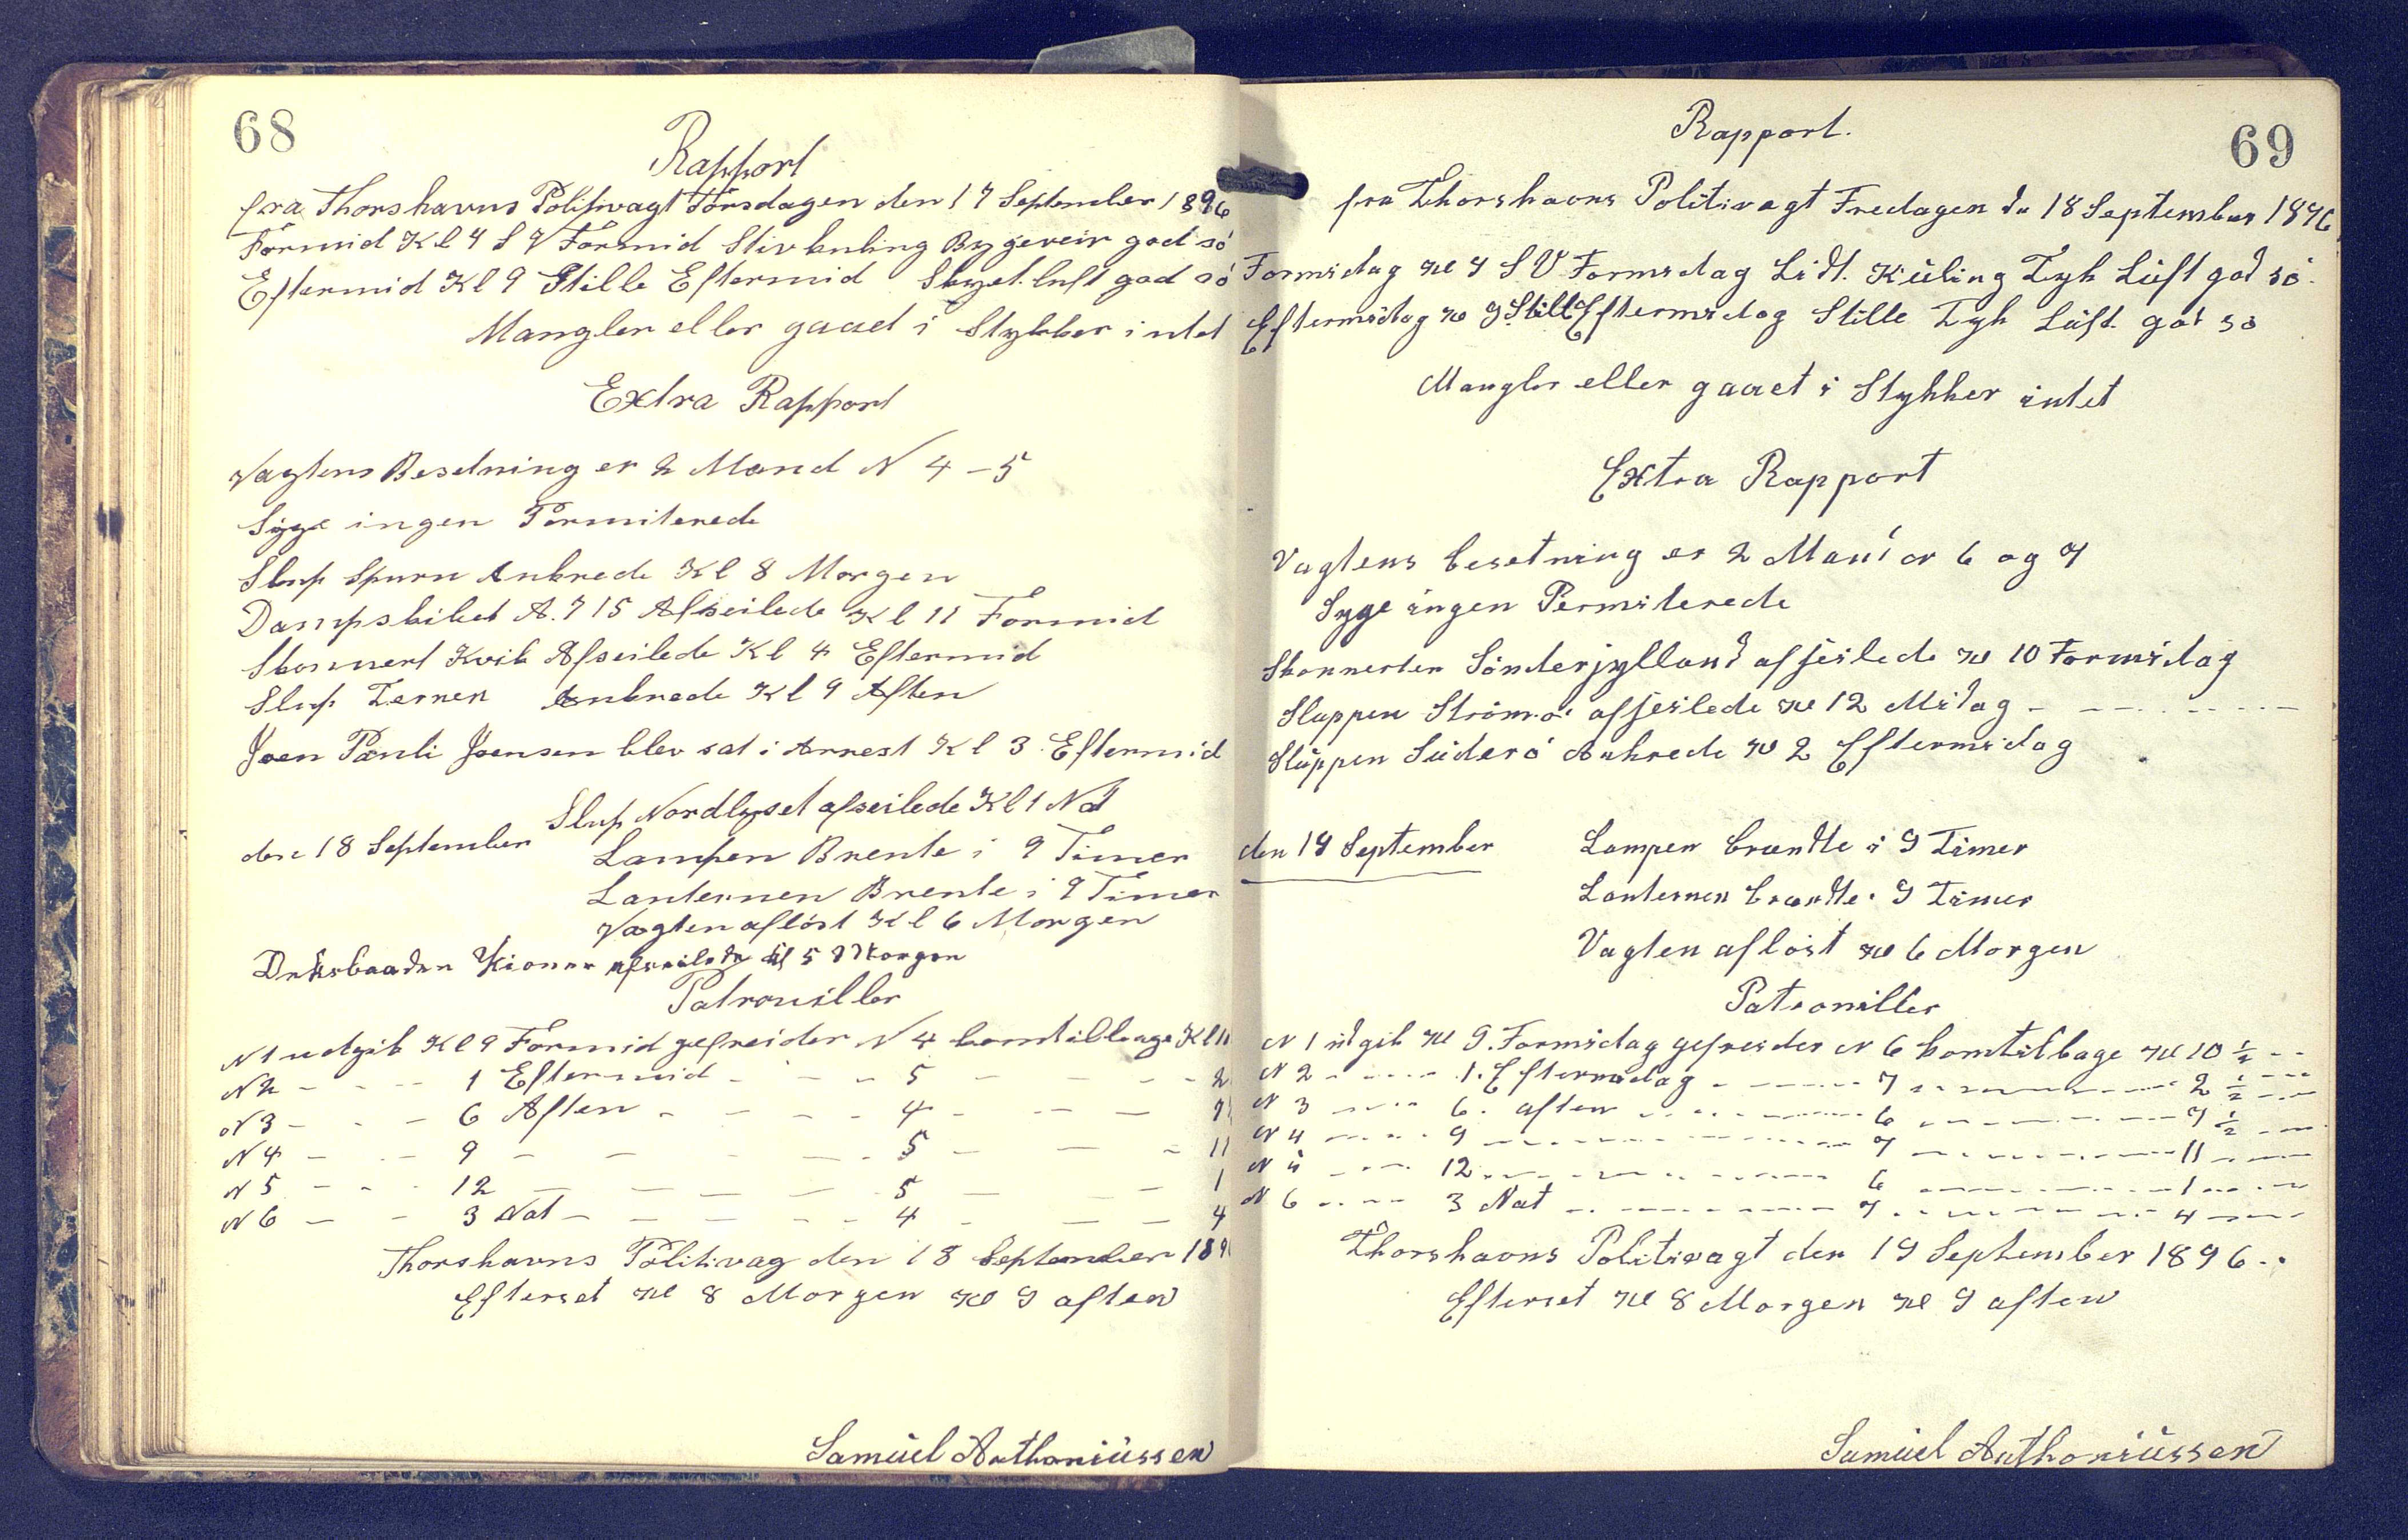 68
Rapport
fra Thorshavns Politivagt Torsdagen den 17 September 1896
Formid Kl 4 S V Formid Stiv kuling Bygeveir god sö
Eftermid Kl 9 Stille Eftermid Skyet luft god sö
Mangler eller gaaet i Stykker intet
Extra Rapport
Vagtens Besetning er 2 Mand N 4 - 5
Syge ingen Permiterede
Slup Spurn Ankrede Kl 8 Morgen
Dampskibet A. 715 Afseilede Kl 11 Formid
Skonnert Kvik Afseilede Kl 4 Eftermid
Slup Ternen Ankrede Kl 9 Aften
Joen Pauli Joensen blev sat i Arrest Kl 3 Eftermid
Slup Nordlyset afseilede Kl 1 Nat
den 18 September
Lampen Brente i 9 Timer
Lanternen Brente i 9 Timer
Vagten aflöst Kl 6 Morgen
Deksbaaden Kionur afseilede Kl 5 Morgen
Patrouiller
N 1 udgik Kl 9 Formid gefreider N 4 kom tilbage Kl 11
N 2 - - - 1 Eftermid - - - 5 - - - 2
N 3 - - - 6 Aften - - - 4 - - - 7
N 4 - - - 9 - - - 5 - - - 11
N 5 - - - 12 - - - 5 - - - 1
N 6 - - 3 Nat - - - 4 - - - 4
Thorshavns Politivag den 18 September 189
Efterset Kl 8 Morgen Kl 9 aften
Samüel Anthoniüssen
69
Rapport.
fra Thorshavns Politivagt Fredagen de 18 September 1896
Formidag Kl 4 S V Formidag Lidt Küling Tyk Lüft god sö.
Eftermidag Kl 9 Stille Eftermidag Stille Tyk Lüft god sö
Mangler eller gaaet i Stykker intet
Extra Rapport
Vagtens besetning er 2 Mand N 6 og 7
Syge ingen Permiterede
Skonnerten Sönderjylland afseilede Kl 10 Formidag
Sluppen Strömö afseilede Kl 12 Midag - - - -
Slüppen Süderö Ankrede Kl 2 Eftermidag
den 19 September
Lampen brændte i 9 Timer
Lanternen brændte i 9 Timer
Vagten aflöst Kl 6 Morgen
Patrouiller
N 1 üdgik Kl 9. Formidag gefreider N 6 kom tilbage Kl 10 ½ - -
N 2 - - - 1. Eftermidag - - - 7 - - - 2 ½ - - -
N 3 - - - 6. aften - - - 6 - - - 7 ½ - - -
N 4 - - - 9 - - - 7 - - - 11 - - -
N 5 - - - 12 - - - 6 - - - 1 - - -
N 6 - - - 3 Nat - - - 7 - - - 4 - - -
Thorshavns Politivagt den 19 September 1896..
Efterset Kl 8 Morgen Kl 9 aften
Samüel Anthoniüssen